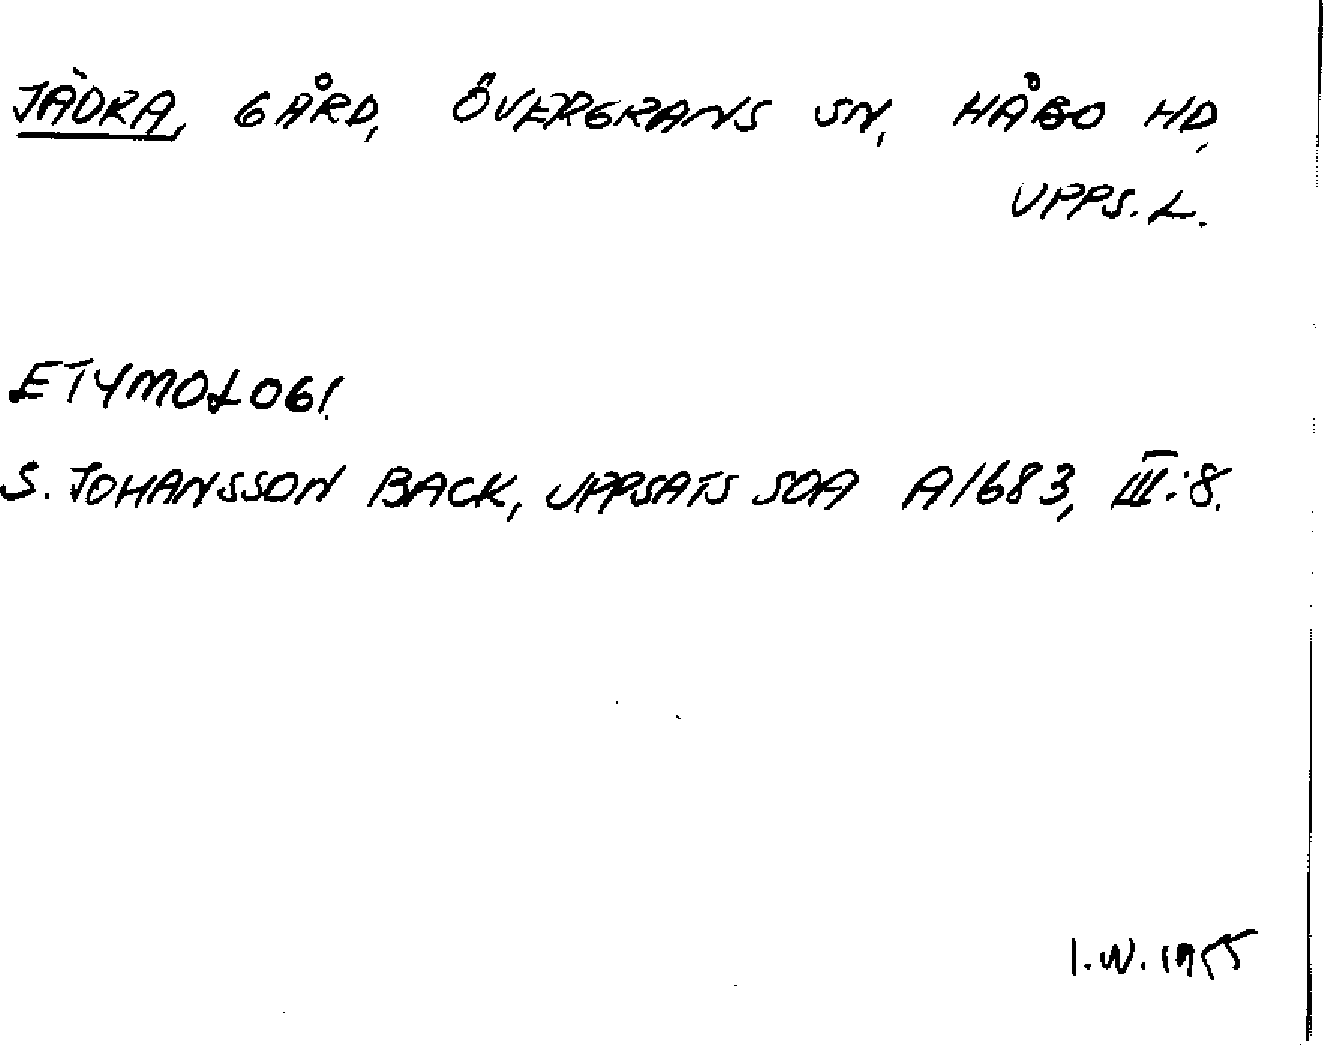 JÄDRA, GÅRD, ÖVERGRANS SN, HÅBO HD,
UPPS. L.
ETYMOLOGI.
S. JOHANSSON BACK, UPPSATS SOA A1683, III:8.
I.W. 1955